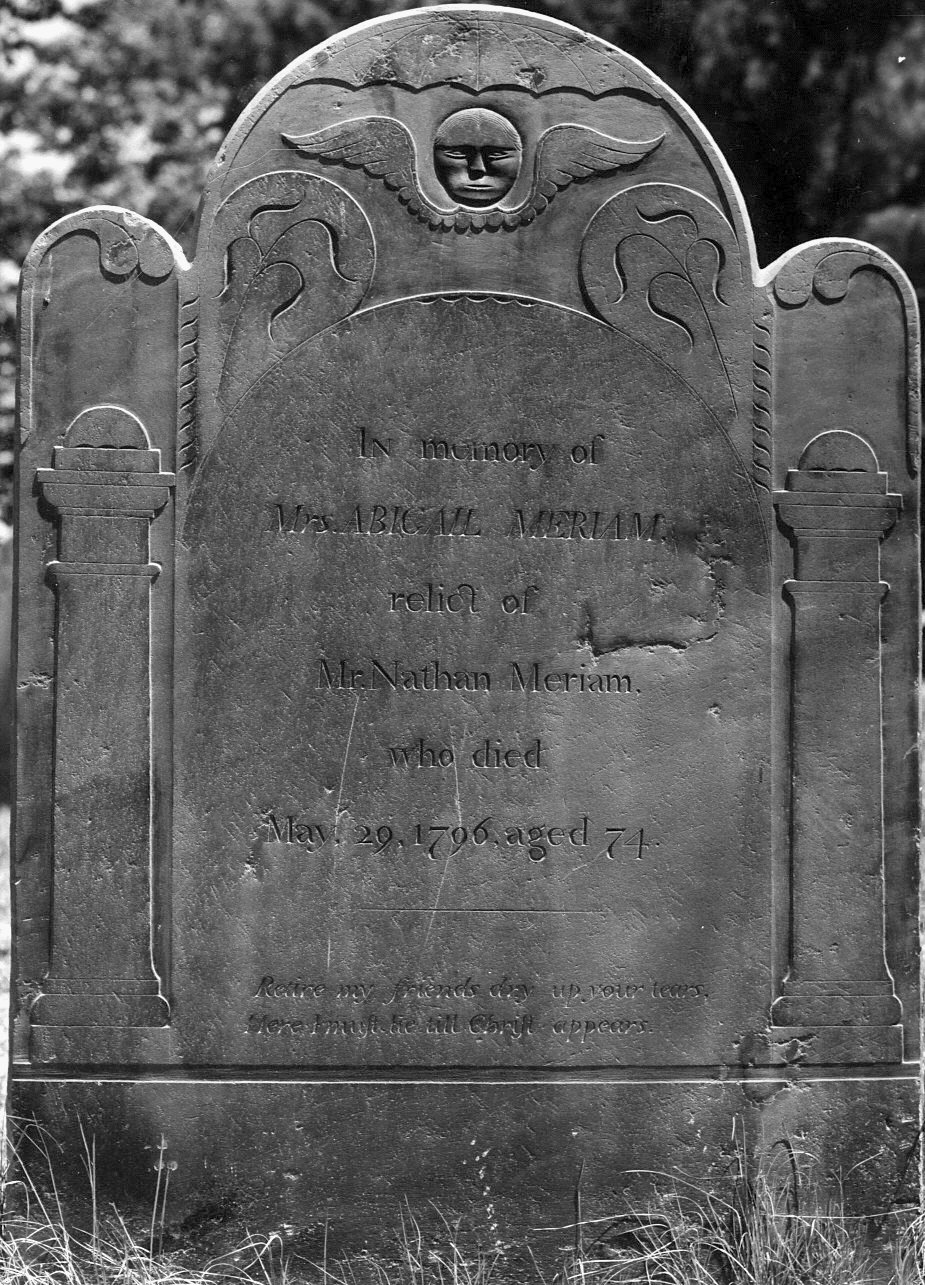 In memory of
Mrs. ABIGAIL MERIAM,
relict of
Mr. Nathan Meriam,
who died
May, 29, 1796, aged 74.
Retire my friends dry up your tears,
Here I muſt lie till Chriſt appears.